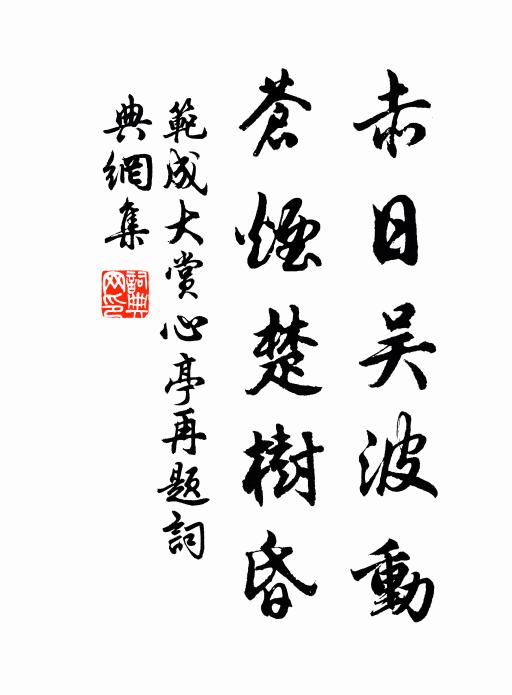 赤日吴波動
蒼煙楚樹昏
範成大賞心亭再题詞
典網集
詞典
网印